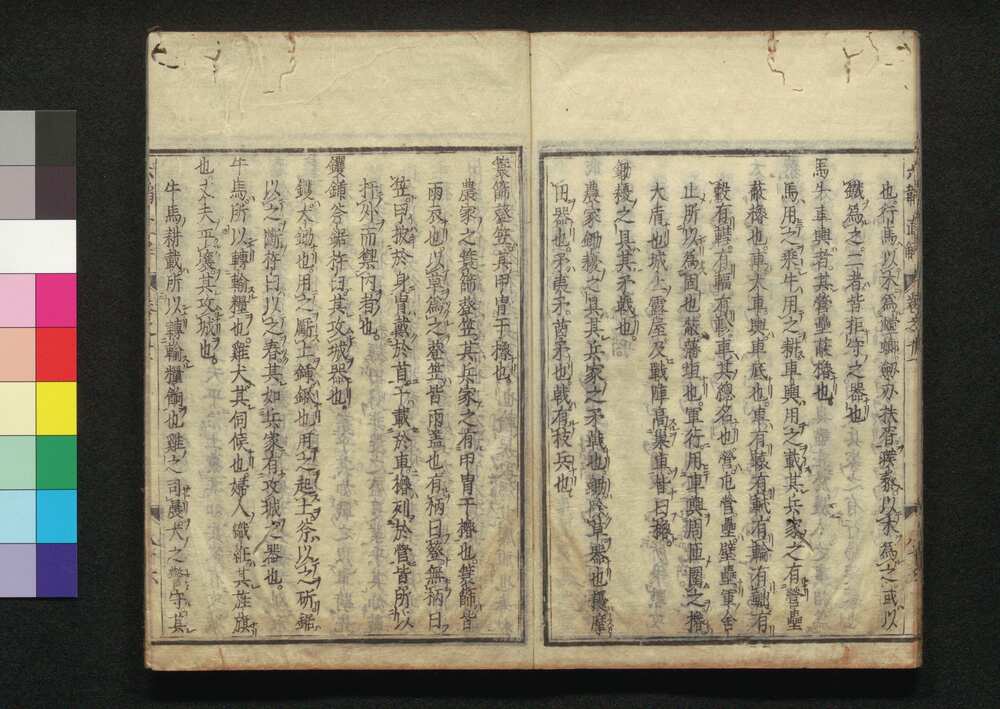 也行馬以木為螳螂劔刃扶胥蒺藜以木為之或以
鐵為之二者皆拒守之器也
馬牛車輿者其營壘蔽櫓也
馬用之乘牛用之耕車輿用之載其兵家之有營壘
蔽櫓也車大車輿車底也車有轅有軾有輪有軸有
轂有轄有輻有軫車其總名也營屯營壘壁壘軍舍
止所以為固也蔽藩垣也軍行用車輿周匝圍之櫓
大盾也城上露屋及戰陣高巢車皆曰櫓
鋤耰之具其矛戟也
農家鋤耰之具其兵家之矛戟也鋤除草器也耰摩
田器也矛夷矛酋矛也戟有枝兵也
簑簦笠其甲胄干櫓也
農家之簑簦笠其兵家之有甲胄干櫓也簑皆
雨衣也以草為之簦笠皆雨蓋也有柄曰簦無柄曰
笠甲披於身胄戴於首干載於車櫓列於營皆所以
扞外而禦内者也
钁鍤斧鋸杵臼其攻城器也
钁大鋤也用之斸土鍤鍬也用之起土斧以之斫鋸
以之斷杵臼以之舂其如兵家有攻城之器也
牛馬所以轉輸糧也雞犬其伺候也婦人織紝其旌旗
也丈夫平壤其攻城也
牛馬耕載所以轉輸糧餉也雞之司晨犬之警守其